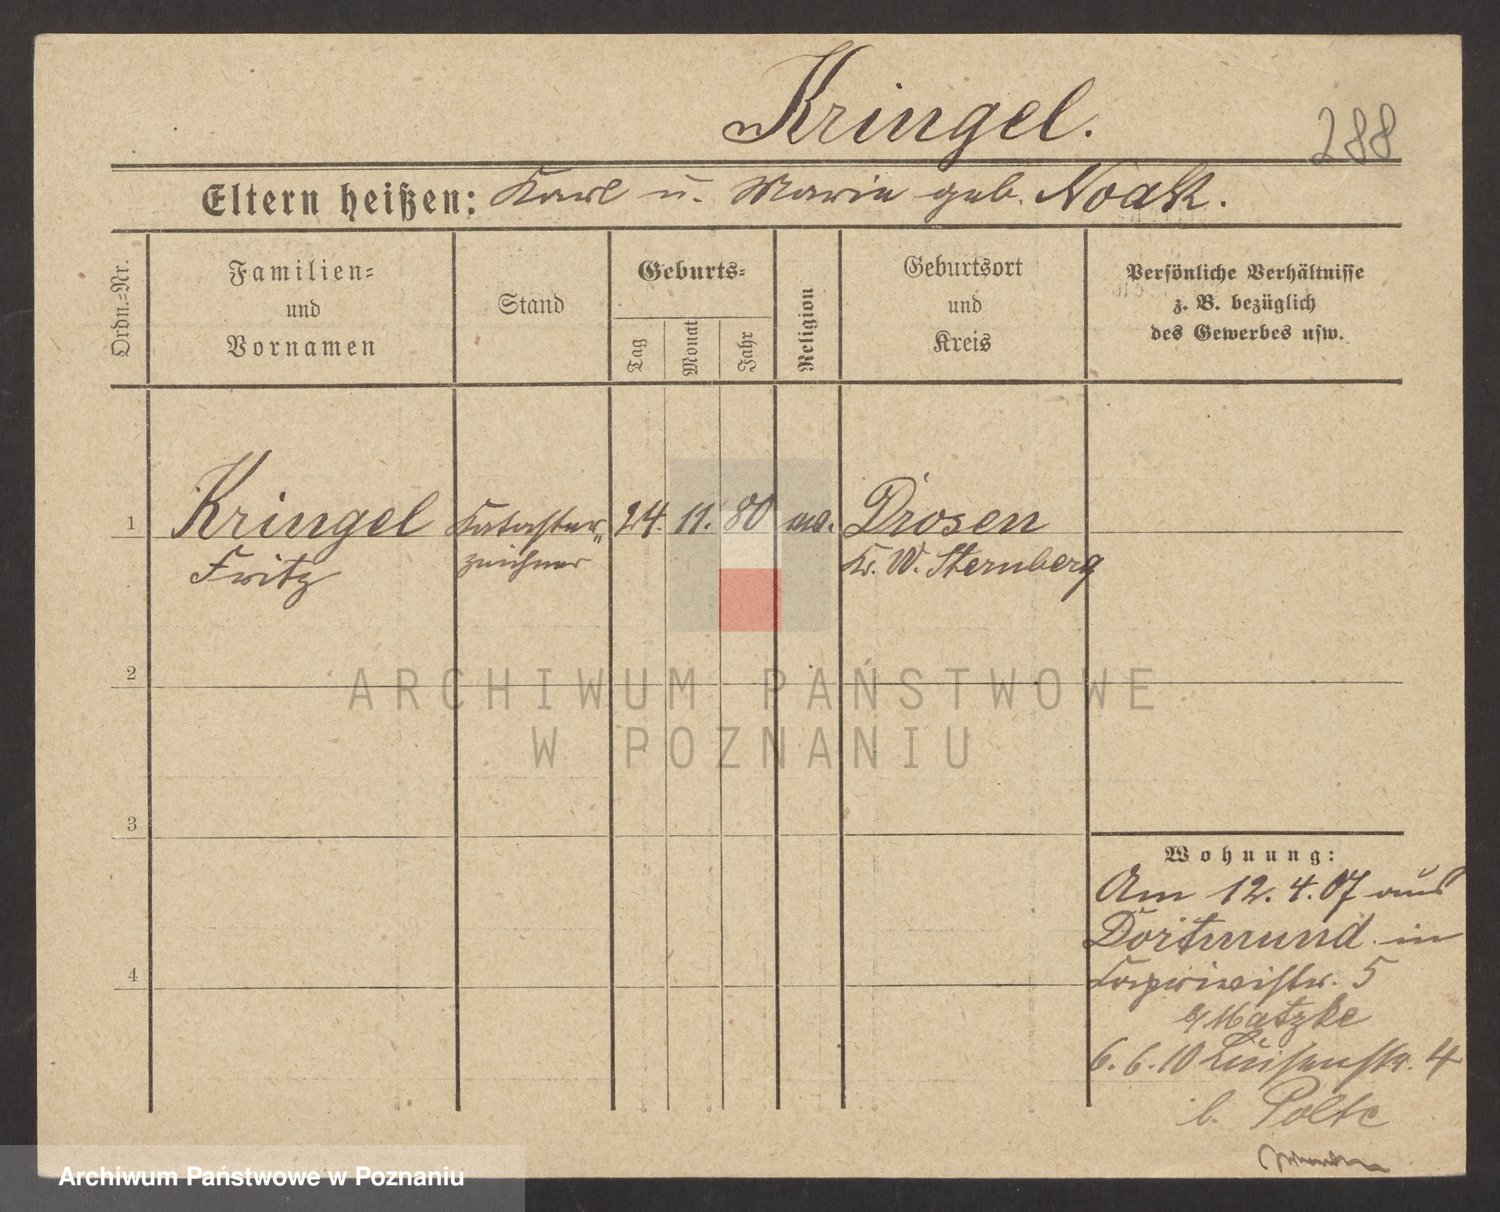 Kringel.
288
Eltern heißen: Karl u. Marie geb. Noak.
Ordn.-Nr.
Familien-
und
Vornamen
Stand
Geburts-
Tag
Monat
Jahr
Religion
Geburtsort
und
Kreis
Persönliche Verhältnisse
z. B. bezüglich
des Gewerbes usw.
1 Kringel Kataster- 24. 11. 80 ev. Drosen
Fritz zeichner Kr. W. Sternberg
2
3
4
Wohnung:
Am 12.4.07 aus
Dortmund in
Capriwistr. 5
b/ Matzke
6.6.10 Luisenstr. 4
b. Polte
ARCHIWUM PAŃSTWOWE
W POZNANIU
Archiwum Państwowe w Poznaniu